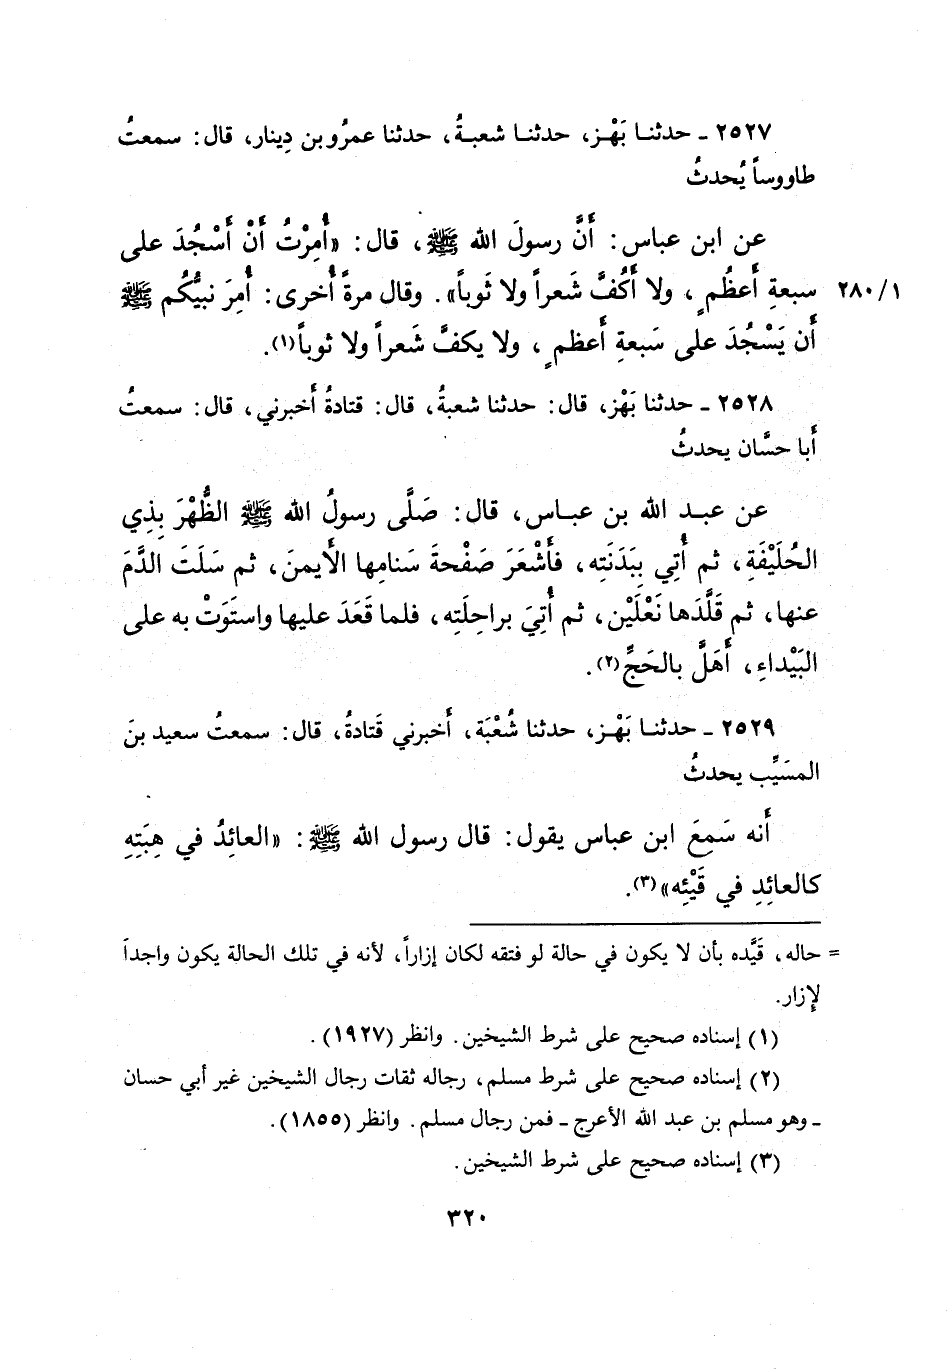 ٢٥٢٧ ـ حدثنـا بَهْـز، حدثنـا شعبـةُ، حدثنا عمرُو بن دِينار، قال: سمعتُ
طاووساً يُحدثُ
عن ابن عباس: أَنَّ رسولَ الله ﷺ، قال: «أُمِرْتُ أَنْ أَسْجُدَ على
سبعةِ أَعظُمٍ، ولا أَكُفَّ شَعراً ولا ثَوباً». وقال مرةً أُخرى: أُمِرَ نبيُّكُم ﷺ ٢٨٠/١
أَن يَسْجُدَ على سَبعةِ أَعظمٍ، ولا يكفَّ شَعراً ولا ثوباً(١).
٢٥٢٨ ـ حدثنا بَهْز، قال: حدثنا شعبةُ، قال: قتادةُ أَخبرني، قال: سمعتُ
أَبا حسَّان يحدثُ
عن عبـد الله بن عبـاس، قال: صَلَّى رسولُ الله ﷺ الظُّهْرَ بِذي
الحُلَيْفَةِ، ثم أُتِي بِبَدَنَتِه، فأَشْعَرَ صَفْحةَ سَنامِها الأَيمنَ، ثم سَلَتَ الدَّمَ
عنها، ثم قَلَّدَها نَعْلَيْن، ثم أُتِيَ براحِلَتِه، فلما قَعَدَ عليها واستَوَتْ به على
البَيْداءِ، أَهَلَّ بالحَجِّ(٢).
٢٥٢٩ ـ حدثنـا بَهْـز، حدثنا شُعْبَة، أَخبرني قَتادةُ، قال: سمعتُ سعيد بنَ
المسَيِّب يحدثُ
أَنه سَمِعَ ابن عباس يقول: قال رسول الله ﷺ: «العائِدُ في هِبَتِهِ
كالعائِدِ في قَيْئِه»(٣).
= حاله، قَيَّده بأن لا يكون في حالة لو فتقه لكان إزاراً، لأنه في تلك الحالة يكون واجداً
لإِزار.
(١) إسناده صحيح على شرط الشيخين. وانظر (١٩٢٧).
(٢) إسناده صحيح على شرط مسلم، رجاله ثقات رجال الشيخين غير أبي حسان
ـ وهو مسلم بن عبد الله الأعرج ـ فمن رجال مسلم. وانظر (١٨٥٥).
(٣) إسناده صحيح على شرط الشيخين.
٣٢٠